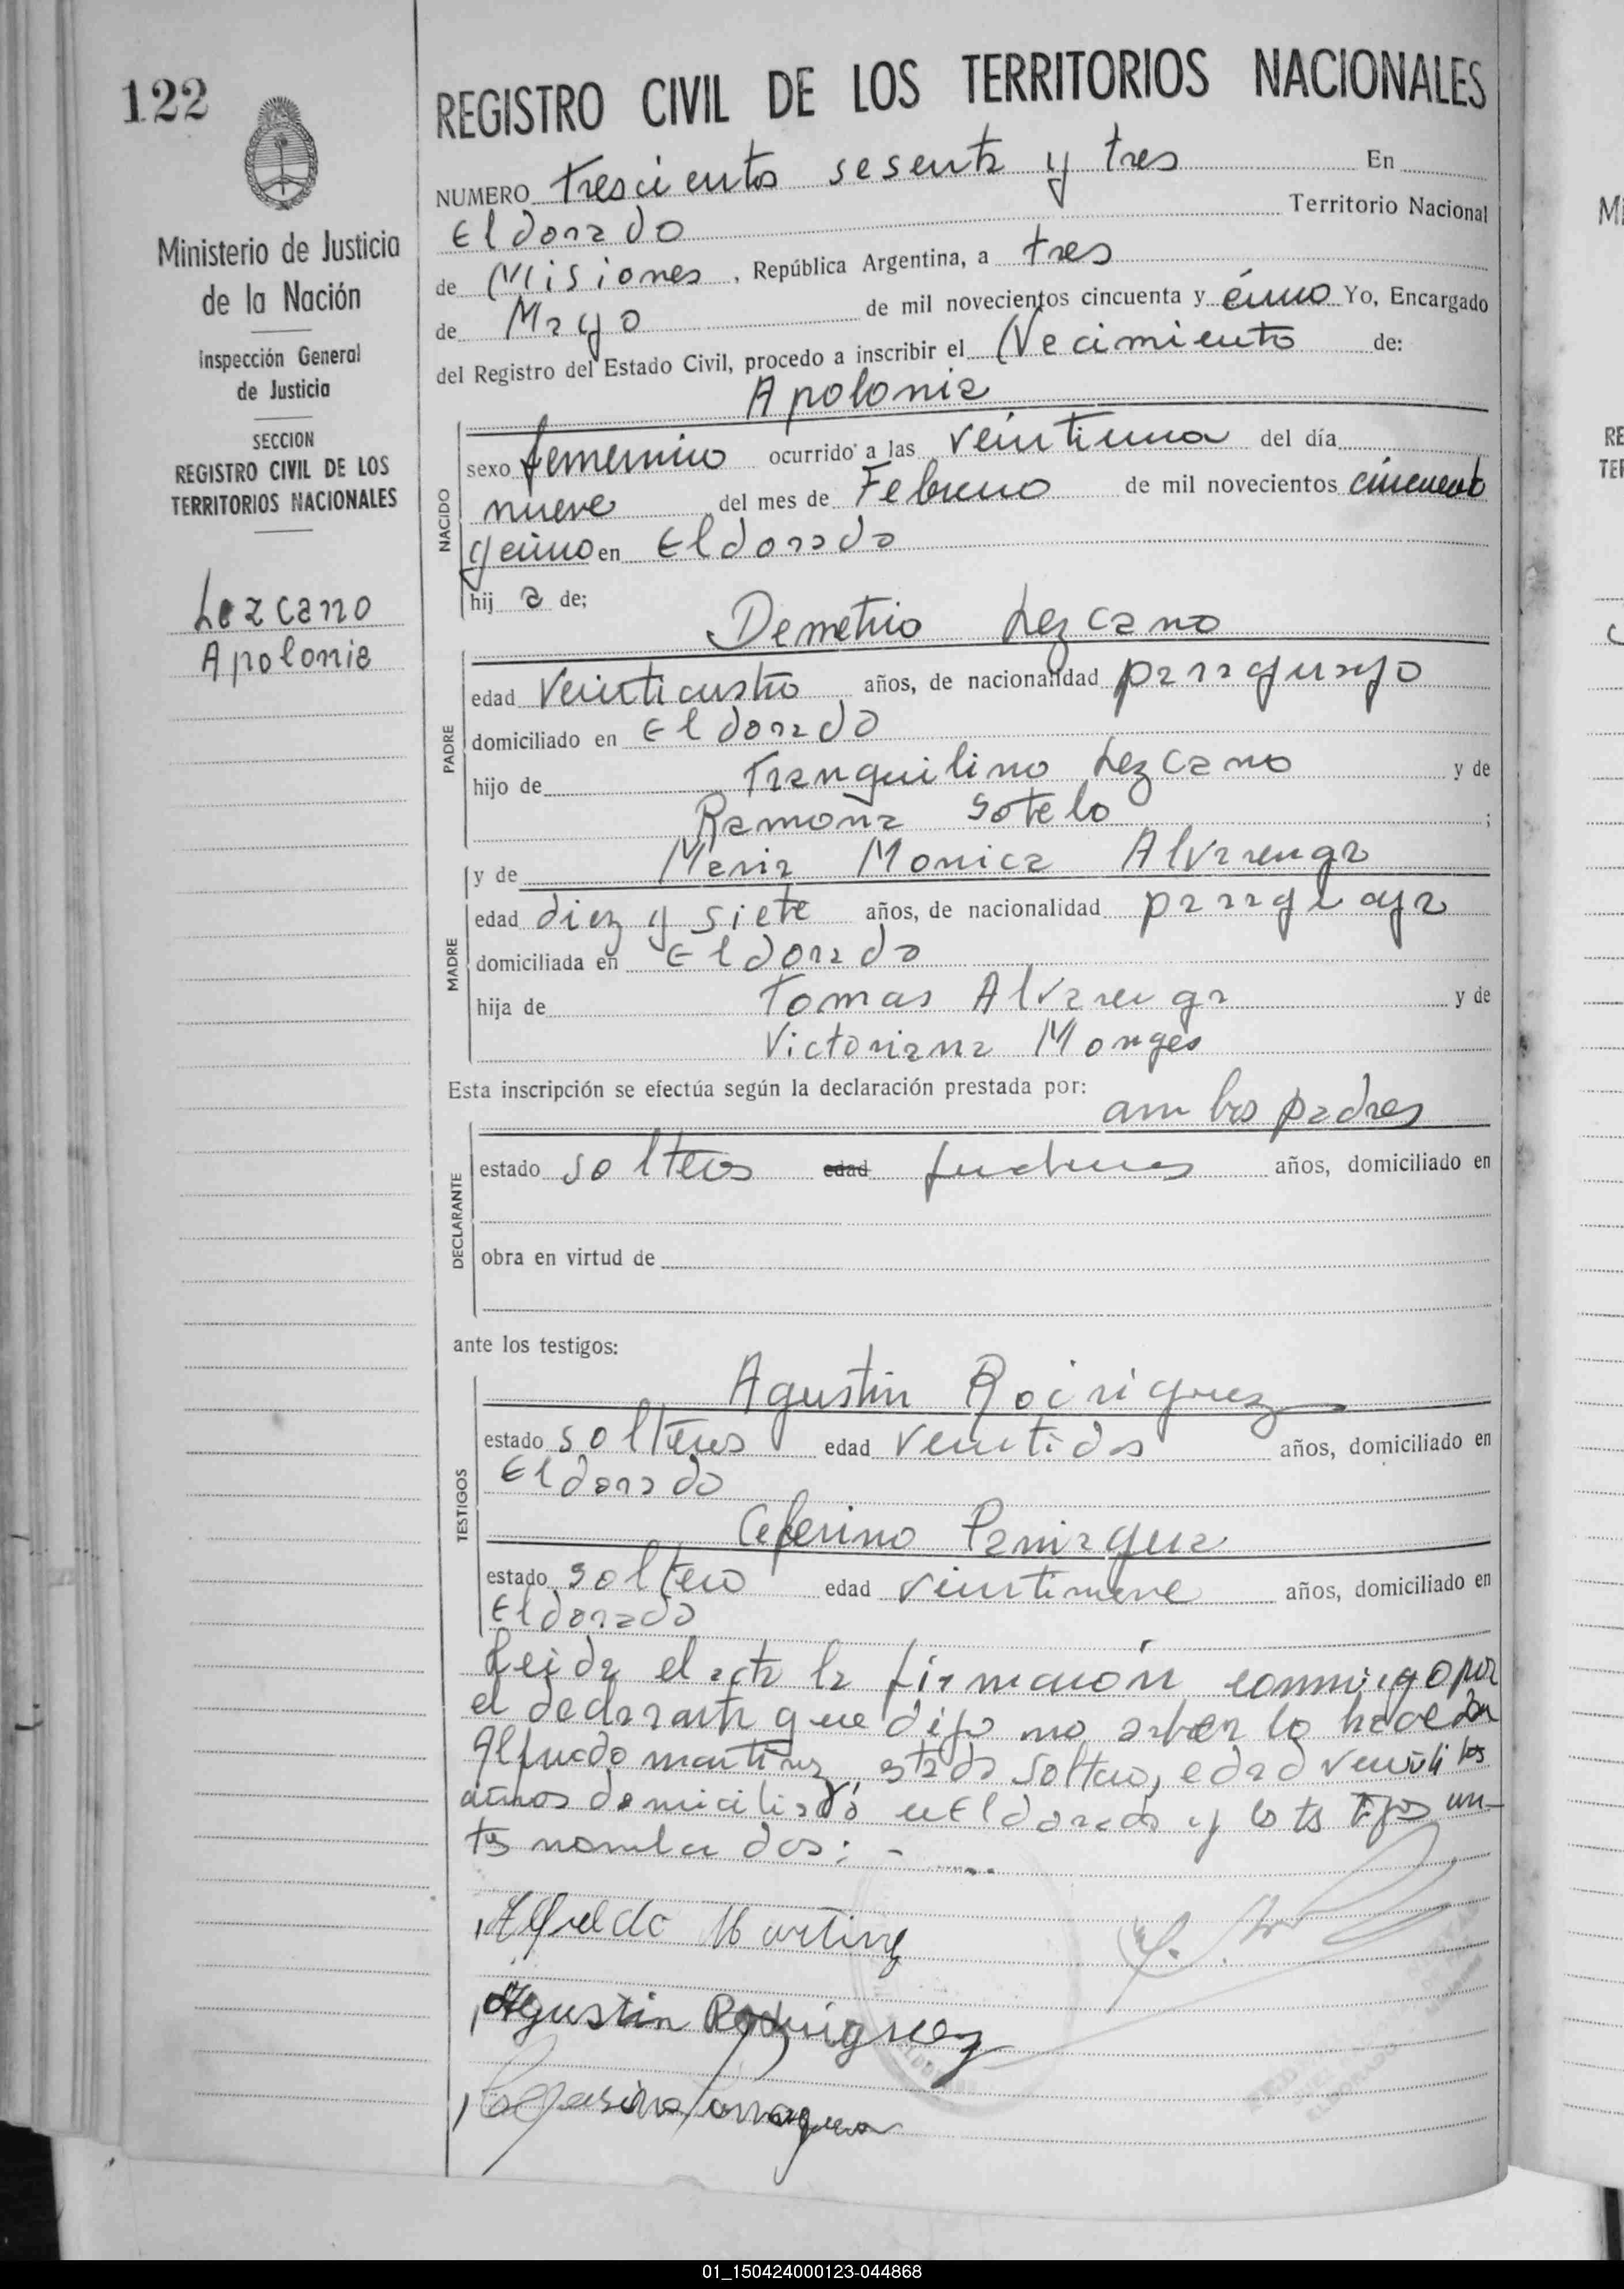 122
Ministerio de Justicia
de la Nación
Inspección General
de Justicia
SECCION
REGISTRO CIVIL DE LOS
TERRITORIOS NACIONALES
Lezcano
Apolonia
REGISTRO CIVIL DE LOS TERRITORIOS NACIONALES
NUMERO Trescientos sesenta y tres En
Eldorado Territorio Nacional
de Misiones, República Argentina, a tres
de Mayo de mil novecientos cincuenta y cinco Yo, Encargado
del Registro del Estado Civil, procedo a inscribir el Nacimiento de:
Apolonia
NACIDO
sexo femenino ocurrido a las veintiuna del día
nueve del mes de Febrero de mil novecientos cincuenta
y cinco en Eldorado
hija de:
Demetrio Lezcano
PADRE
edad veinticuatro años, de nacionalidad paraguayo
domiciliado en Eldorado
hijo de Tranquilino Lezcano y de
Ramona Sotelo ;
y de Maria Monica Alvarenga
MADRE
edad diez y siete años, de nacionalidad paraguaya
domiciliada en Eldorado
hija de Tomas Alvarenga y de
Victoriana Monges
Esta inscripción se efectúa según la declaración prestada por:
ambos padres
DECLARANTE
estado solteros edad años, domiciliado en
obra en virtud de
ante los testigos:
TESTIGOS
Agustin Rodriguez
estado soltero edad veintidos años, domiciliado en
Eldorado
Ceferino Paniagua
estado soltero edad veintinueve años, domiciliado en
Eldorado
Leida el acta la firmaron conmigo por
el declarante que dijo no saber lo hace don
Alfredo Martinez, estado soltero, edad
años domiciliado en Eldorado y los testigos an-
tes nombrados: -
Alfredo Martinez
Agustin Rodriguez
Ceferino Paniagua
ELDORADO
Mi
RE
TER
01_150424000123-044868